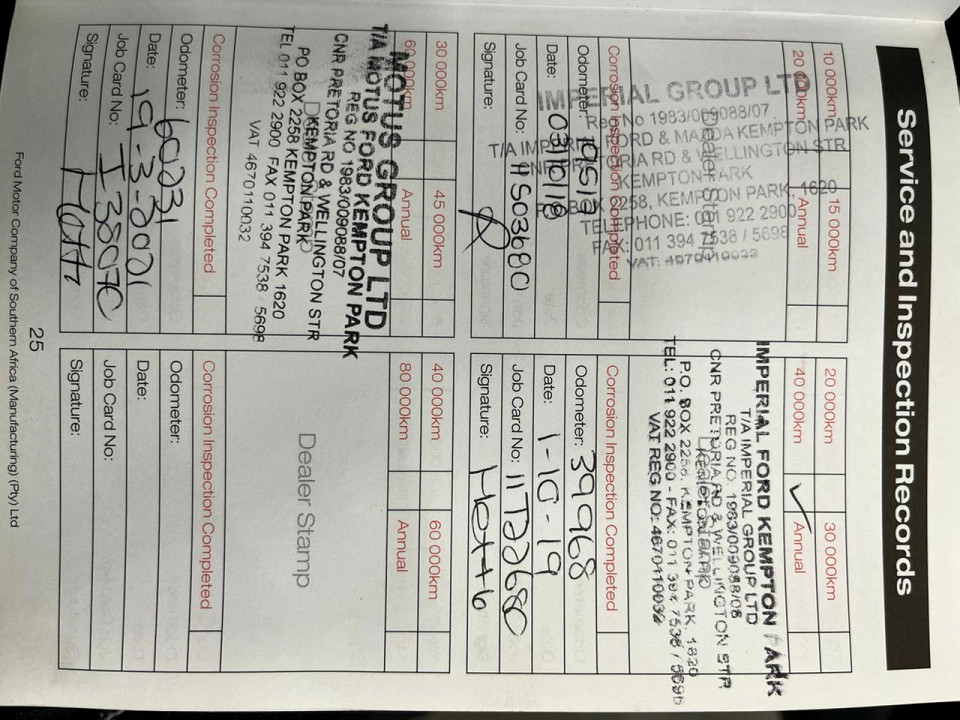 Service and Inspection Records
10 000km
15 000km
20 000km
Annual
IMPERIAL GROUP LTD
Reg No 1983/009088/07
FORD & MAZDA KEMPTON PARK
Dealer Stamp
T/A IMPERIAL
PRETORIA RD & WELLINGTON STR
KEMPTON PARK
BOX 2258, KEMPTON PARK, 1620
TELEPHONE: 011 922 2900
FAX: 011 394 7538 / 5698
VAT: 4670110032
Corrosion Inspection Completed
Odometer: 19519
Date: 03/10/18
Job Card No: HS03680
Signature:
20 000km
30 000km
40 000km ✓
Annual
IMPERIAL FORD KEMPTON PARK
T/A IMPERIAL GROUP LTD
REG NO. 1983/009088/06
CNR PRETORIA RD & WELLINGTON STR
Dealer Stamp
KEMPTON PARK
P.O. BOX 2258, KEMPTON PARK, 1620
TEL: 011 922 2900 - FAX: 011 394 7538 / 5698
VAT REG NO: 4670110032
Corrosion Inspection Completed
Odometer: 39968
Date: 1-10-19
Job Card No: 11TD2680
Signature:
30 000km
45 000km
60 000km
Annual
MOTUS GROUP LTD
T/A MOTUS FORD KEMPTON PARK
REG NO 1983/009088/07
CNR PRETORIA RD & WELLINGTON STR
Dealer Stamp
KEMPTON PARK
PO BOX 2258 KEMPTON PARK 1620
TEL 011 922 2900 FAX 011 394 7538 / 5698
VAT 4670110032
Corrosion Inspection Completed
Odometer: 60231
Date: 19-3-2021
Job Card No: I3807C
Signature:
40 000km
60 000km
80 000km
Annual
Dealer Stamp
Corrosion Inspection Completed
Odometer:
Date:
Job Card No:
Signature:
25
Ford Motor Company of Southern Africa (Manufacturing) (Pty) Ltd